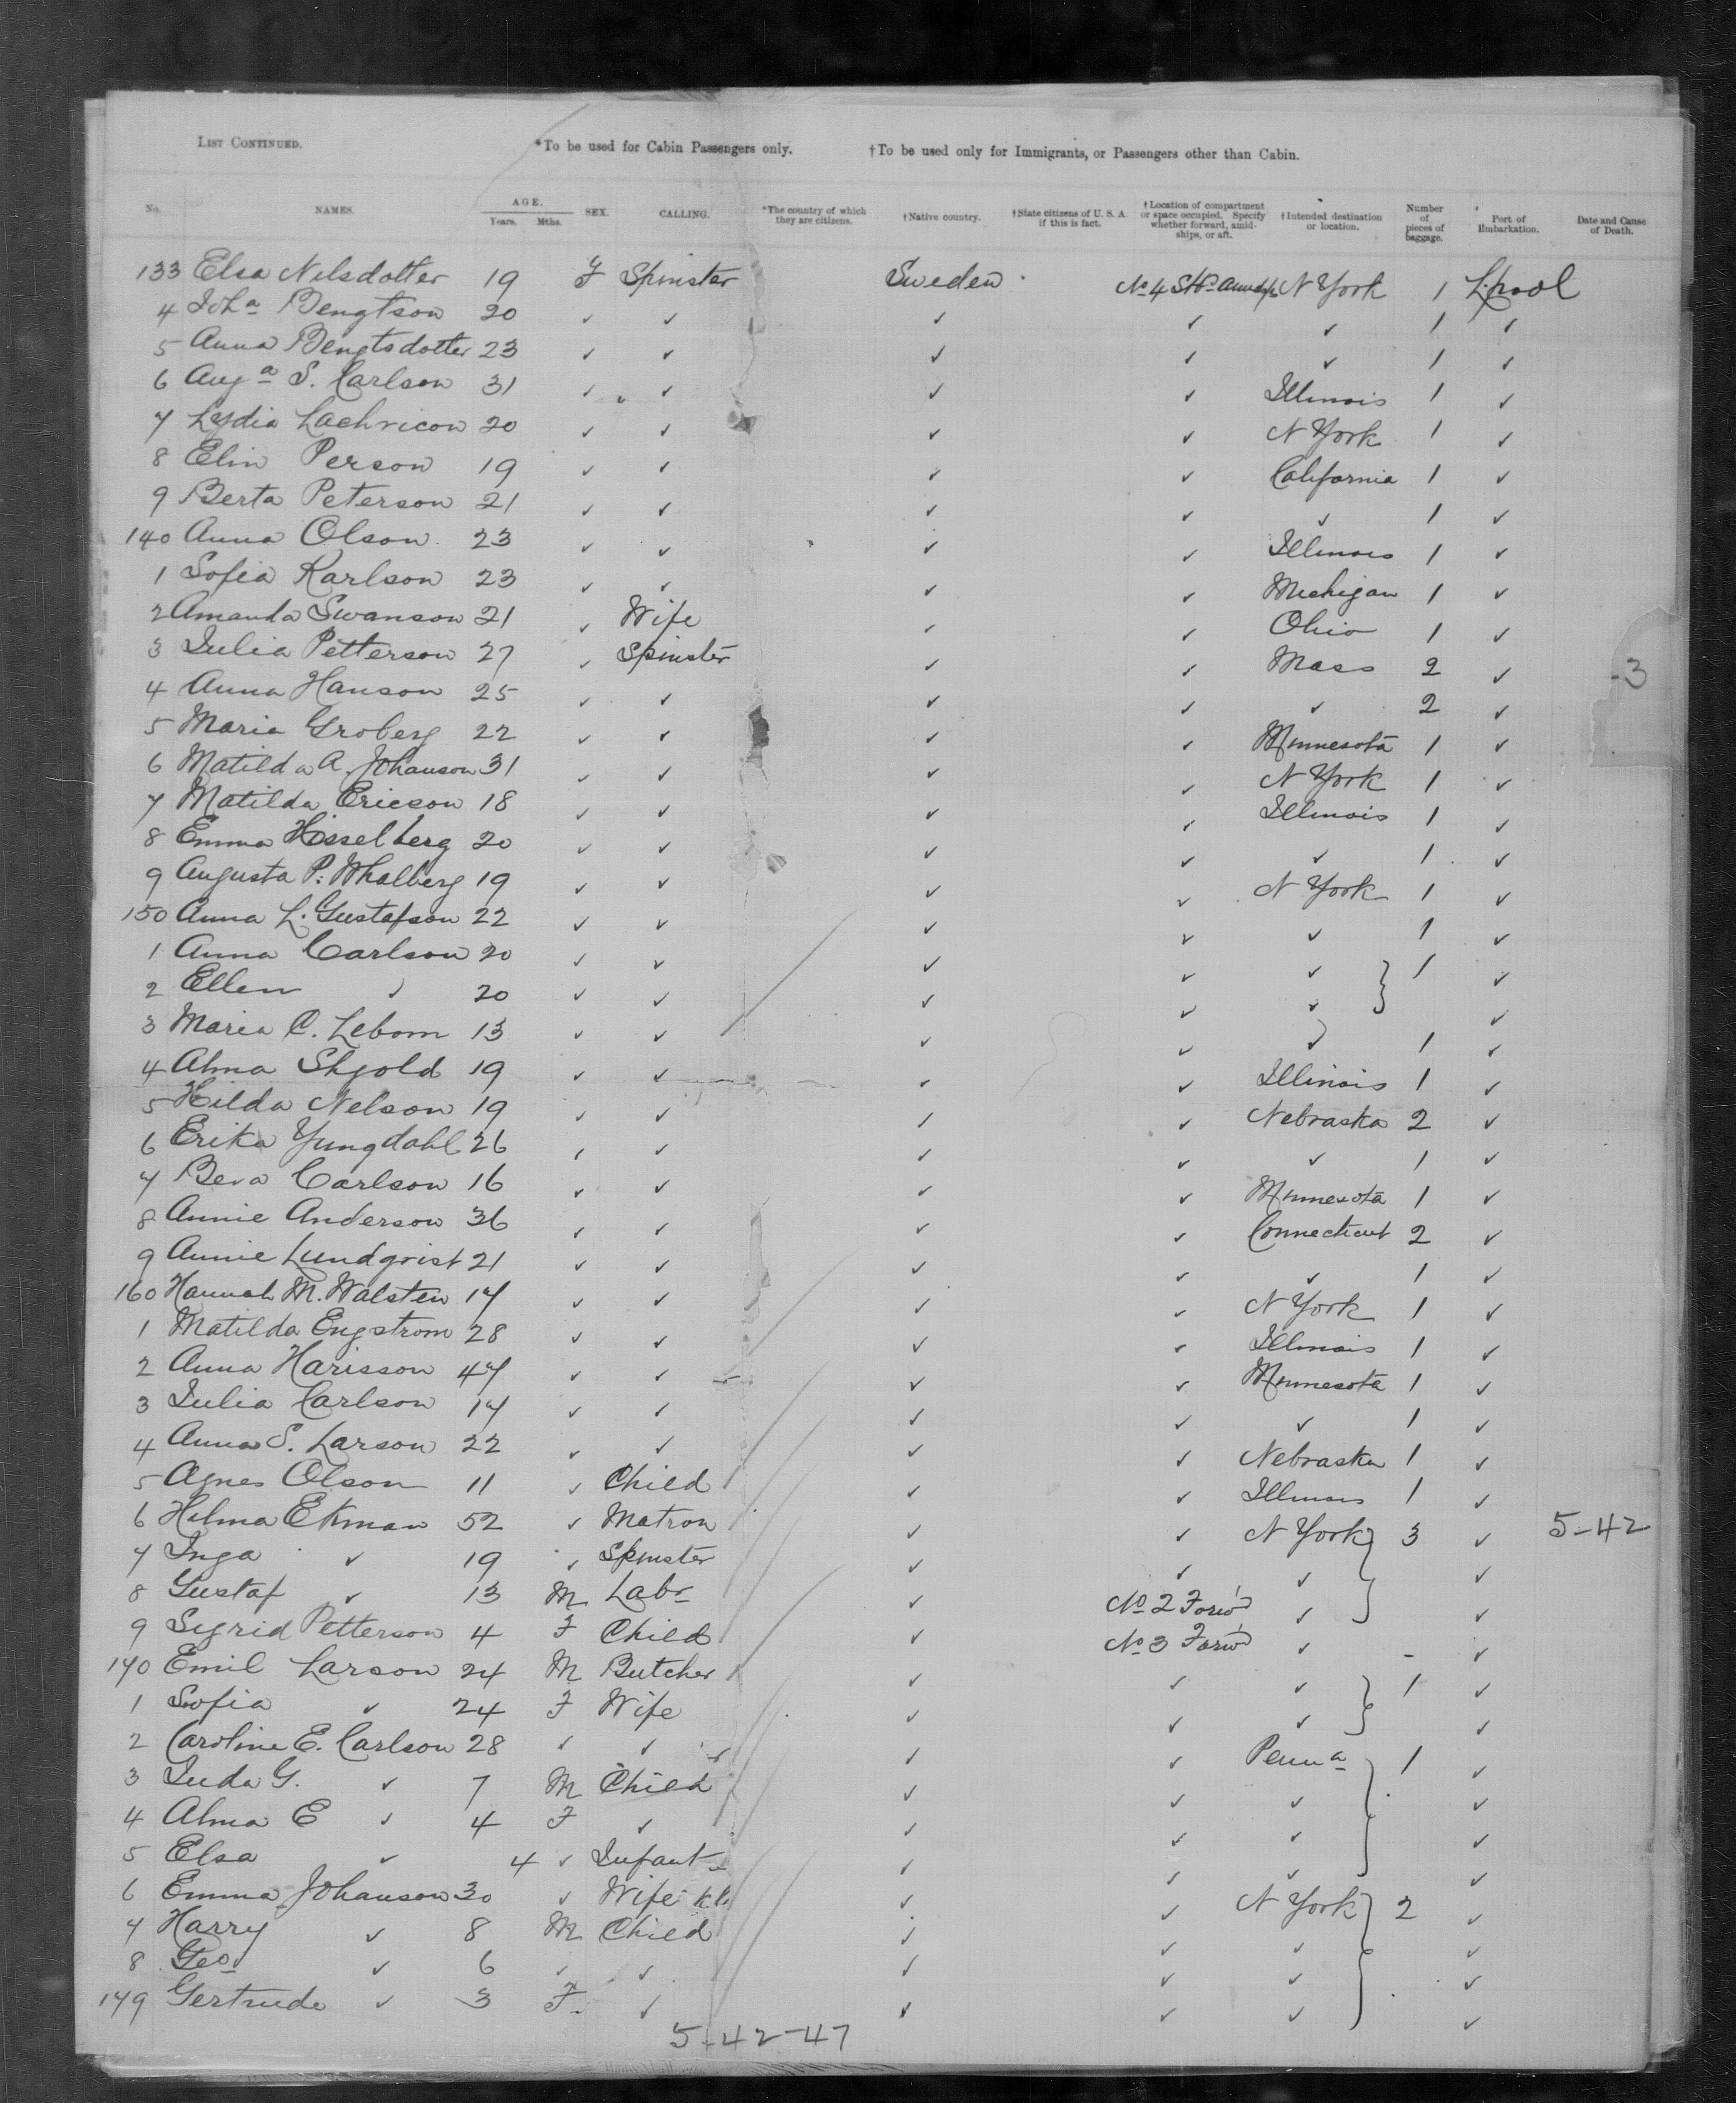 LIST CONTINUED. *To be used for Cabin Passengers only. †To be used only for Immigrants, or Passengers other than Cabin.
No. NAMES. AGE. Years. Mths. SEX. CALLING. *The country of which they are citizens. †Native country. †State citizens of U. S. A. if this is fact. †Location of compartment or space occupied. Specify whether forward, amidships, or aft. †Intended destination or location. Number of pieces of baggage. Port of Embarkation. Date and Cause of Death.
133 Elsa Nilsdotter 19 F Spinster Sweden No 4 N York 1 L.pool
4 Joha Bengtson 20 ✓ ✓ ✓ ✓ ✓ 1 ✓
5 Anna Bengtsdotter 23 ✓ ✓ ✓ ✓ ✓ 1 ✓
6 Auga S. Carlson 31 ✓ ✓ ✓ ✓ Illinois 1 ✓
7 Lydia 20 ✓ ✓ ✓ ✓ N York 1 ✓
8 Elin Person 19 ✓ ✓ ✓ ✓ California 1 ✓
9 Berta Peterson 21 ✓ ✓ ✓ ✓ ✓ 1 ✓
140 Anna Olson 23 ✓ ✓ ✓ ✓ Illinois 1 ✓
1 Sofia Karlson 23 ✓ ✓ ✓ ✓ Michigan 1 ✓
2 Amanda Swanson 21 ✓ Wife ✓ ✓ Ohio 1 ✓
3 Julia Petterson 27 ✓ Spinster ✓ ✓ Mass 2 ✓ -3
4 Anna Hanson 25 ✓ ✓ ✓ ✓ ✓ 2 ✓
5 Maria Groberg 22 ✓ ✓ ✓ ✓ Minnesota 1 ✓
6 Matilda A. Johanson 31 ✓ ✓ ✓ ✓ N York 1 ✓
7 Matilda Ericson 18 ✓ ✓ ✓ ✓ Illinois 1 ✓
8 Emma Hisselberg 20 ✓ ✓ ✓ ✓ ✓ 1 ✓
9 Augusta P. Whalberg 19 ✓ ✓ ✓ ✓ N York 1 ✓
150 Anna L. Gustafson 22 ✓ ✓ ✓ ✓ ✓ 1 ✓
1 Anna Carlson 20 ✓ ✓ ✓ ✓ ✓ } 1 ✓
2 Ellen ✓ 20 ✓ ✓ ✓ ✓ ✓ ✓
3 Maria C. Lebom 13 ✓ ✓ ✓ ✓ ✓ 1 ✓
4 Alma Skgold 19 ✓ ✓ ✓ ✓ Illinois 1 ✓
5 Hilda Nelson 19 ✓ ✓ ✓ ✓ Nebraska 2 ✓
6 Erika Yungdahl 26 ✓ ✓ ✓ ✓ ✓ 1 ✓
7 Beva Carlson 16 ✓ ✓ ✓ ✓ Minnesota 1 ✓
8 Annie Anderson 36 ✓ ✓ ✓ ✓ Connecticut 2 ✓
9 Annie Lundqrist 21 ✓ ✓ ✓ ✓ ✓ 1 ✓
160 Hannah M. Walsten 17 ✓ ✓ ✓ ✓ N York 1 ✓
1 Matilda Engstrom 28 ✓ ✓ ✓ ✓ Illinois 1 ✓
2 Anna Harisson 47 ✓ ✓ ✓ ✓ Minnesota 1 ✓
3 Julia Carlson 17 ✓ ✓ ✓ ✓ ✓ 1 ✓
4 Anna S. Larson 22 ✓ ✓ ✓ ✓ Nebraska 1 ✓
5 Agnes Olson 11 ✓ Child ✓ ✓ Illinois 1 ✓
6 Hilma Ekman 52 ✓ Matron ✓ ✓ N York } 3 ✓ 5-42
7 Inga ✓ 19 ✓ Spinster ✓ ✓ ✓ ✓
8 Gustaf ✓ 13 M Labr ✓ No 2 Forwd ✓ ✓
9 Sigrid Petterson 4 F Child ✓ No 3 Forwd ✓ - ✓
170 Emil Larson 24 M Butcher ✓ ✓ ✓ } 1 ✓
1 Sofia ✓ 24 F Wife ✓ ✓ ✓ ✓
2 Caroline E. Carlson 28 ✓ ✓ ✓ ✓ Penna } 1 ✓
3 Juda G. ✓ 7 M Child ✓ ✓ ✓ ✓
4 Alma E ✓ 4 F ✓ ✓ ✓ ✓ ✓
5 Elsa ✓ 4 ✓ Infant ✓ ✓ ✓ ✓
6 Emma Johanson 30 ✓ Wife ✓ ✓ N York } 2 ✓
7 Harry ✓ 8 M Child ✓ ✓ ✓ ✓
8 Geo ✓ 6 ✓ ✓ ✓ ✓ ✓ ✓
179 Gertrude ✓ 3 F. ✓ ✓ ✓ ✓ ✓
5-42-47